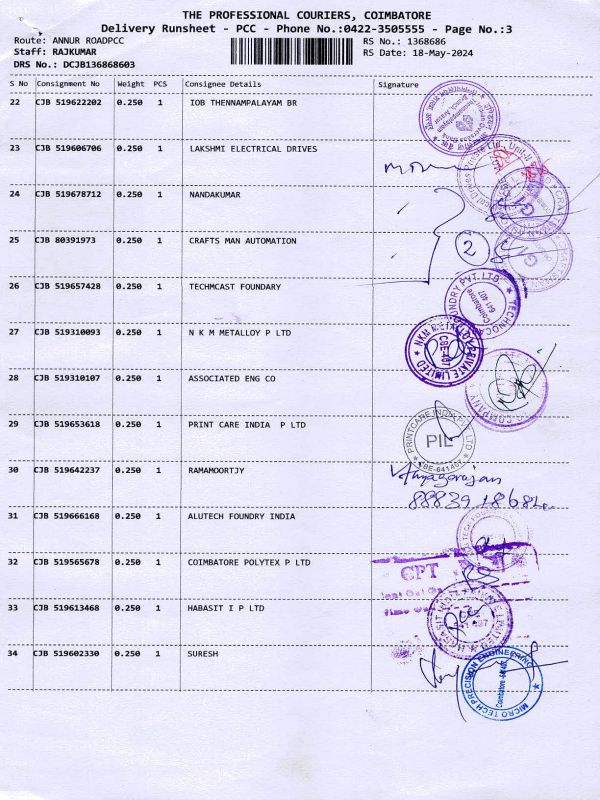 THE PROFESSIONAL COURIERS, COIMBATORE
Delivery Runsheet - PCC - Phone No.:0422-3505555 - Page No.:3
Route: ANNUR ROADPCC RS No.: 1368686
Staff: RAJKUMAR RS Date: 18-May-2024
DRS No.: DCJB136868603
S No Consignment No Weight PCS Consignee Details Signature
22 CJB 519622202 0.250 1 IOB THENNAMPALAYAM BR
23 CJB 519606706 0.250 1 LAKSHMI ELECTRICAL DRIVES
24 CJB 519678712 0.250 1 NANDAKUMAR
25 CJB 80391973 0.250 1 CRAFTS MAN AUTOMATION
2
26 CJB 519657428 0.250 1 TECHMCAST FOUNDARY
Coimbatore
641 407
27 CJB 519310093 0.250 1 N K M METALLOY P LTD
28 CJB 519310107 0.250 1 ASSOCIATED ENG CO
29 CJB 519653618 0.250 1 PRINT CARE INDIA P LTD
PRINTCARE INDIA PVT LTD
PIL
CBE-641407
30 CJB 519642237 0.250 1 RAMAMOORTJY
31 CJB 519666168 0.250 1 ALUTECH FOUNDRY INDIA
32 CJB 519565678 0.250 1 COIMBATORE POLYTEX P LTD
CPT
33 CJB 519613468 0.250 1 HABASIT I P LTD
34 CJB 519602330 0.250 1 SURESH
MICRO TECH PRECISION ENGINEERING